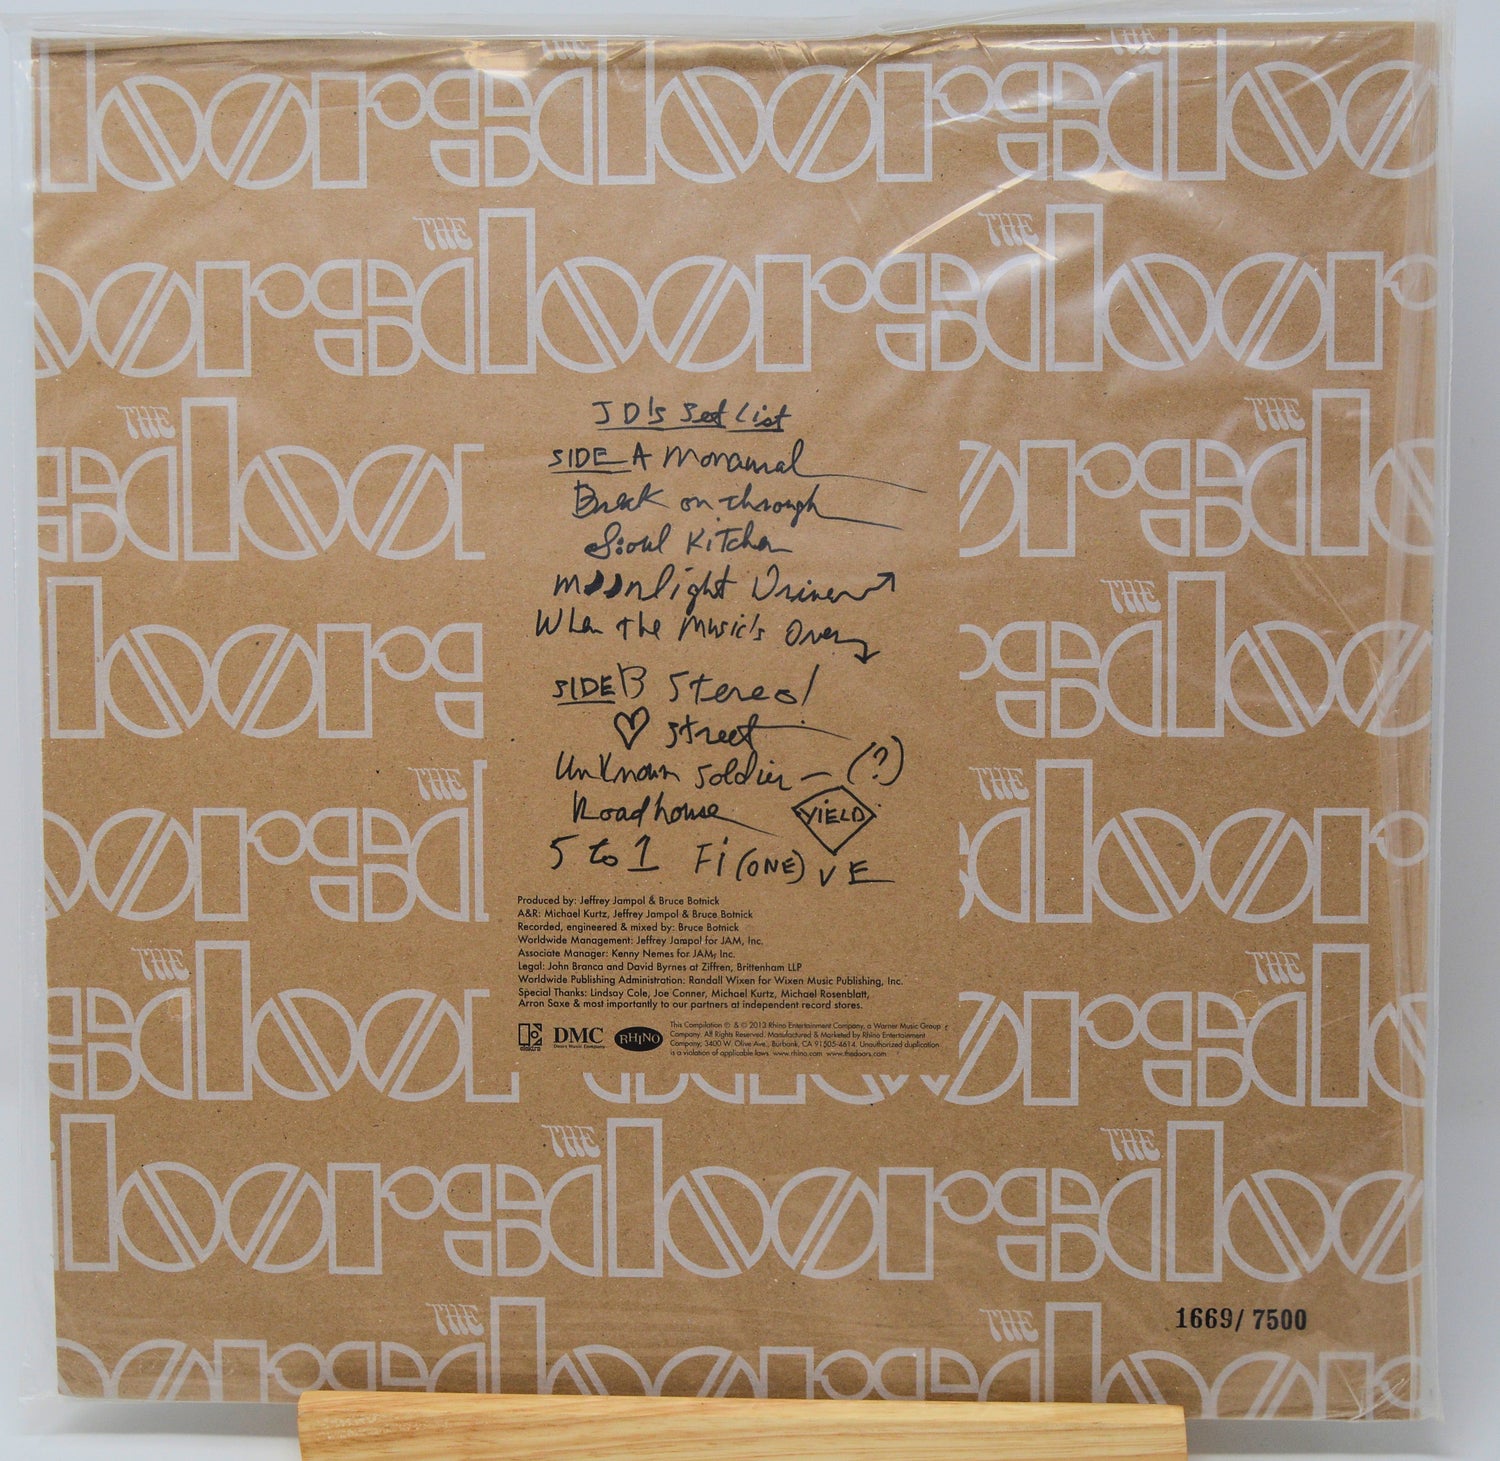 THE doors
JD's Set List
SIDE A Monaural
Break on through
Soul Kitchen
Moonlight Driver
When the Music's Over
SIDE B Stereo!
♡ Street
Unknown Soldier — (?)
Roadhouse YIELD
5 to 1 Fi(ONE)VE
Produced by: Jeffrey Jampol & Bruce Botnick
A&R: Michael Kurtz, Jeffrey Jampol & Bruce Botnick
Recorded, engineered & mixed by: Bruce Botnick
Worldwide Management: Jeffrey Jampol for JAM, Inc.
Associate Manager: Kenny Nemes for JAM, Inc.
Legal: John Branca and David Byrnes at Ziffren, Brittenham LLP
Worldwide Publishing Administration: Randall Wixen for Wixen Music Publishing, Inc.
Special Thanks: Lindsay Cole, Joe Conner, Michael Kurtz, Michael Rosenblatt,
Arron Saxe & most importantly to our partners at independent record stores.
elektra
DMC
Doors Music Company
RHINO
This Compilation ℗ & © 2013 Rhino Entertainment Company, a Warner Music Group
Company. All Rights Reserved. Manufactured & Marketed by Rhino Entertainment
Company, 3400 W. Olive Ave., Burbank, CA 91505-4614. Unauthorized duplication
is a violation of applicable laws. www.rhino.com www.thedoors.com
1669/ 7500